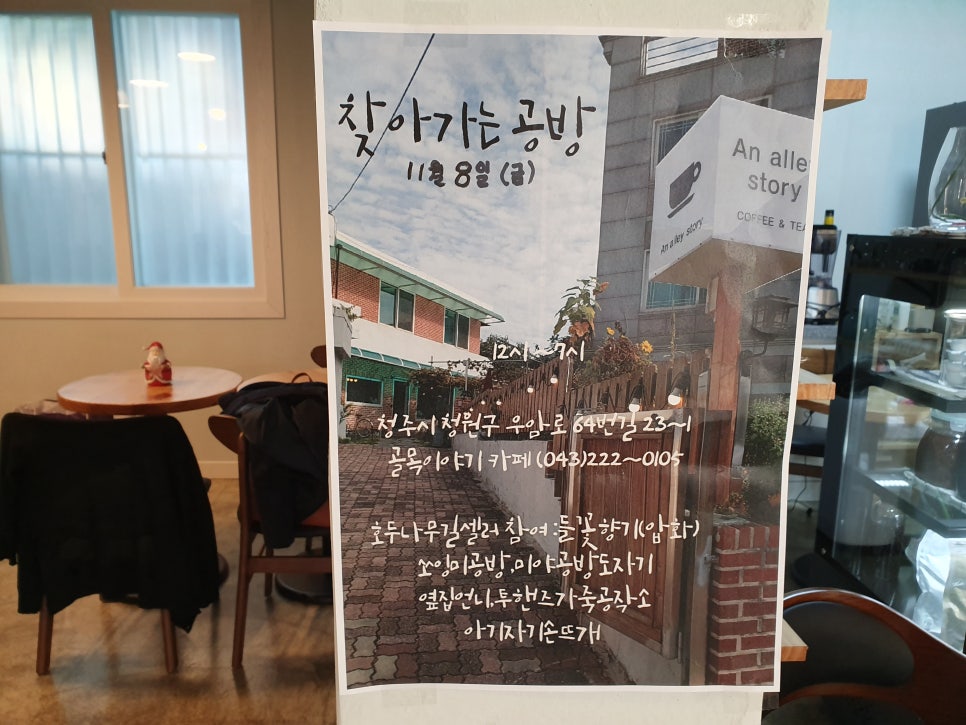 찾아가는 공방
11월 8일 (금)
An alle
story
COFFEE & TEA
An alley story
12시~7시
청주시 청원구 우암로 64번길 23~1
골목이야기 카페 (043)222~0105
호두나무길셀러 참여:들꽃향기(압화)
쏘잉미공방,미야공방도자기
옆집언니,투핸즈가죽공작소
아기자기손뜨개